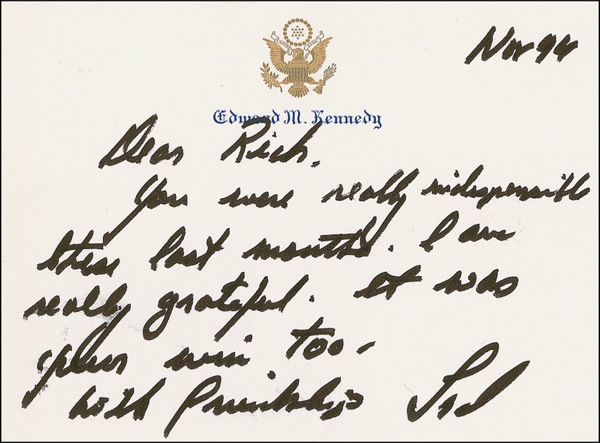 Nov 94
Edward M. Kennedy
Dear Rich,
You were really indispensible
these last months. I am
really grateful. It was
your win too -
with friendship Ted